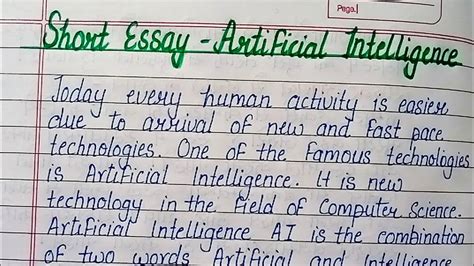 Page.
Short Essay - Artificial Intelligence
Today every human activity is easier
due to arrival of new and fast pace
technologies. One of the famous technologies
is Artificial Intelligence. It is new
technology in the field of Computer Science.
Artificial Intelligence AI is the combination
of two words Artificial and Intelligence